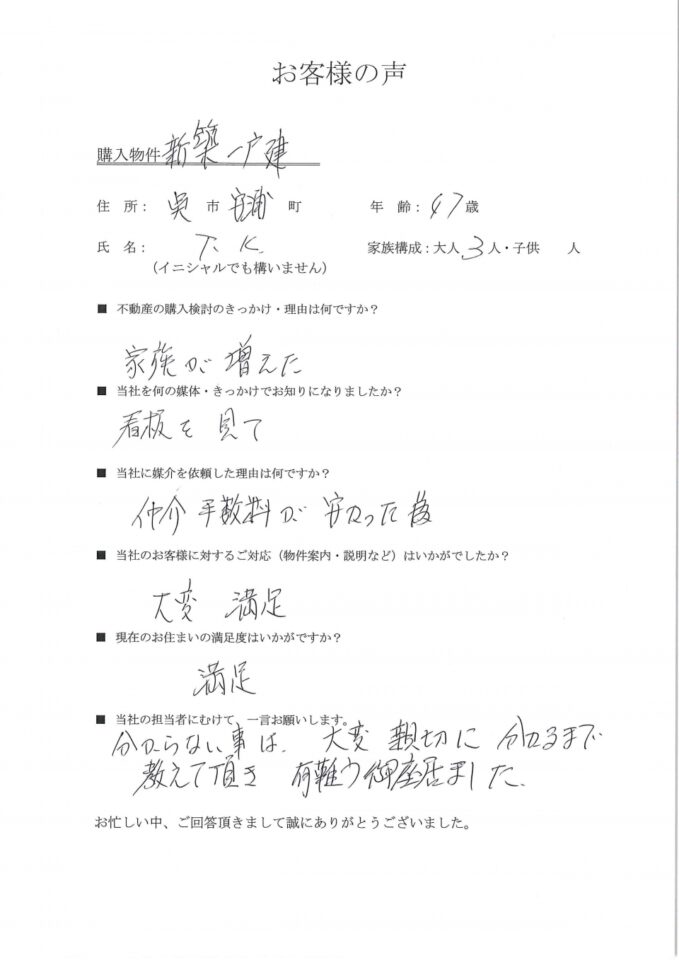 お客様の声
購入物件 新築一戸建
住 所： 呉 市 安浦 町 年 齢：47歳
氏 名： T. K. 家族構成：大人 3 人・子供 人
（イニシャルでも構いません）
■ 不動産の購入検討のきっかけ・理由は何ですか？
家族が増えた
■ 当社を何の媒体・きっかけでお知りになりましたか？
看板を見て
■ 当社に媒介を依頼した理由は何ですか？
仲介手数料が安かった
■ 当社のお客様に対するご対応（物件案内・説明など）はいかがでしたか？
大変 満足
■ 現在のお住まいの満足度はいかがですか？
満足
■ 当社の担当者にむけて、一言お願いします。
分からない事は、大変 親切に 分かるまで
教えて頂き 有難う御座居ました、
お忙しい中、ご回答頂きまして誠にありがとうございました。